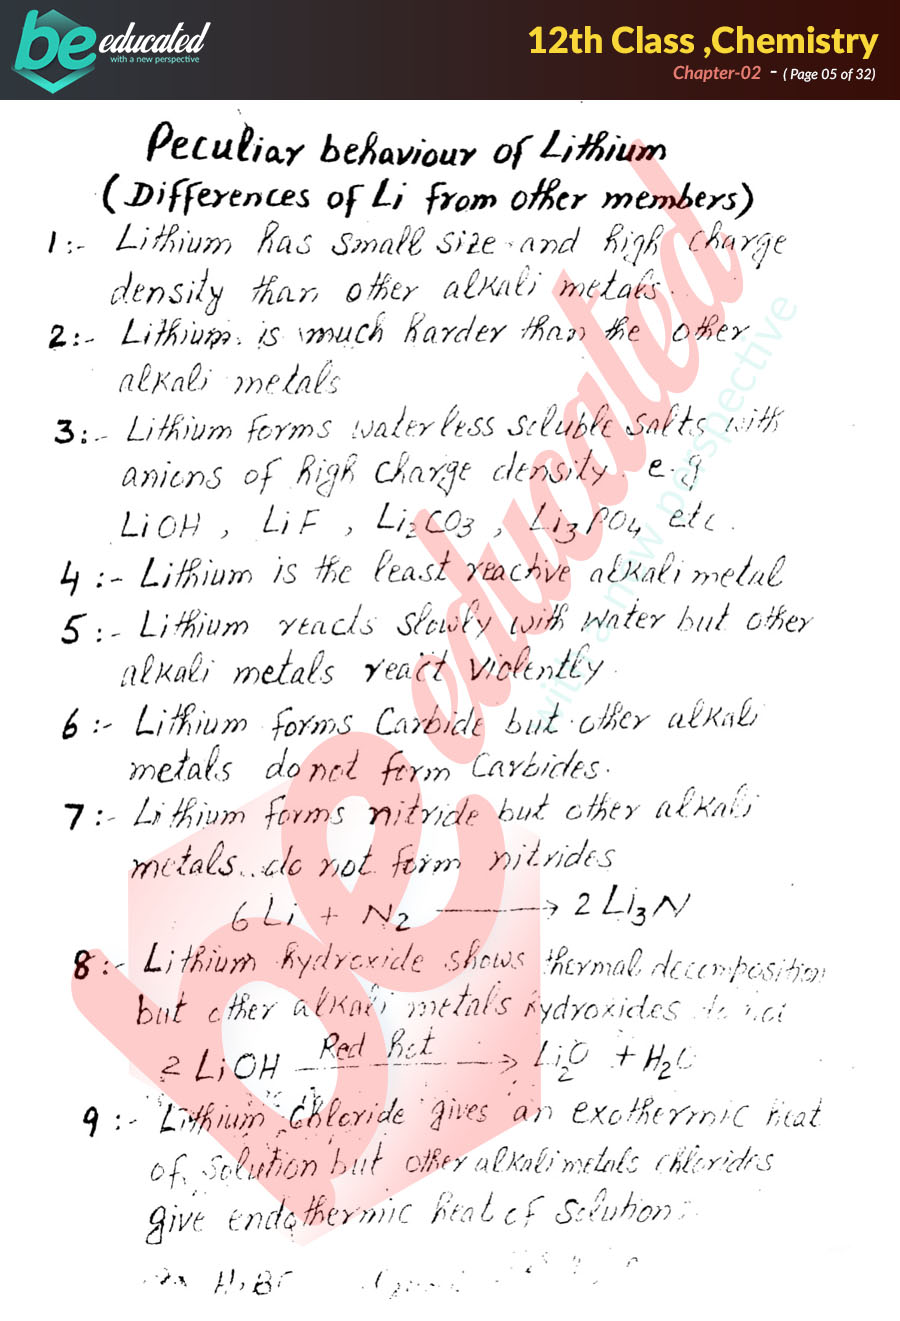 be educated
with a new perspective
12th Class ,Chemistry
Chapter-02 - ( Page 05 of 32)
Peculiar behaviour of Lithium
(Differences of Li from other members)
1:- Lithium has small size and high charge
density than other alkali metals.
2:- Lithium is much harder than the other
alkali metals
3:- Lithium forms water less soluble salts with
anions of high charge density. e.g
LiOH , LiF , Li2CO3 , Li3PO4 etc.
4:- Lithium is the least reactive alkali metal
5:- Lithium reacts slowly with water but other
alkali metals react violently.
6:- Lithium forms Carbide but other alkali
metals do not form Carbides.
7:- Lithium forms nitride but other alkali
metals do not form nitrides
6Li + N2 → 2Li3N
8:- Lithium hydroxide shows thermal decomposition
but other alkali metals hydroxides do not
2LiOH Red hot → Li2O + H2O
9:- Lithium chloride gives an exothermic heat
of solution but other alkali metals chlorides
give endothermic heat of solution.
be educated
with a new perspective